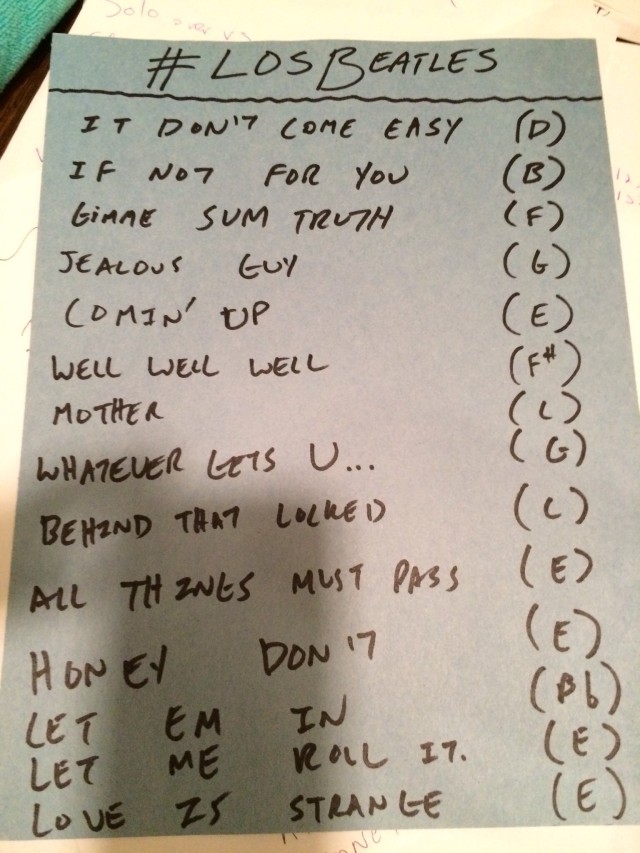 #LOSBEATLES
IT DON'T COME EASY (D)
IF NOT FOR YOU (B)
GIMME SUM TRUTH (F)
JEALOUS GUY (G)
COMIN' UP (E)
WELL WELL WELL (F#)
MOTHER (C)
WHATEVER GETS U... (G)
BEHIND THAT LOCKED (C)
ALL THINGS MUST PASS (E)
HONEY DON'T (E)
LET EM IN (Bb)
LET ME ROLL IT. (E)
LOVE IS STRANGE (E)